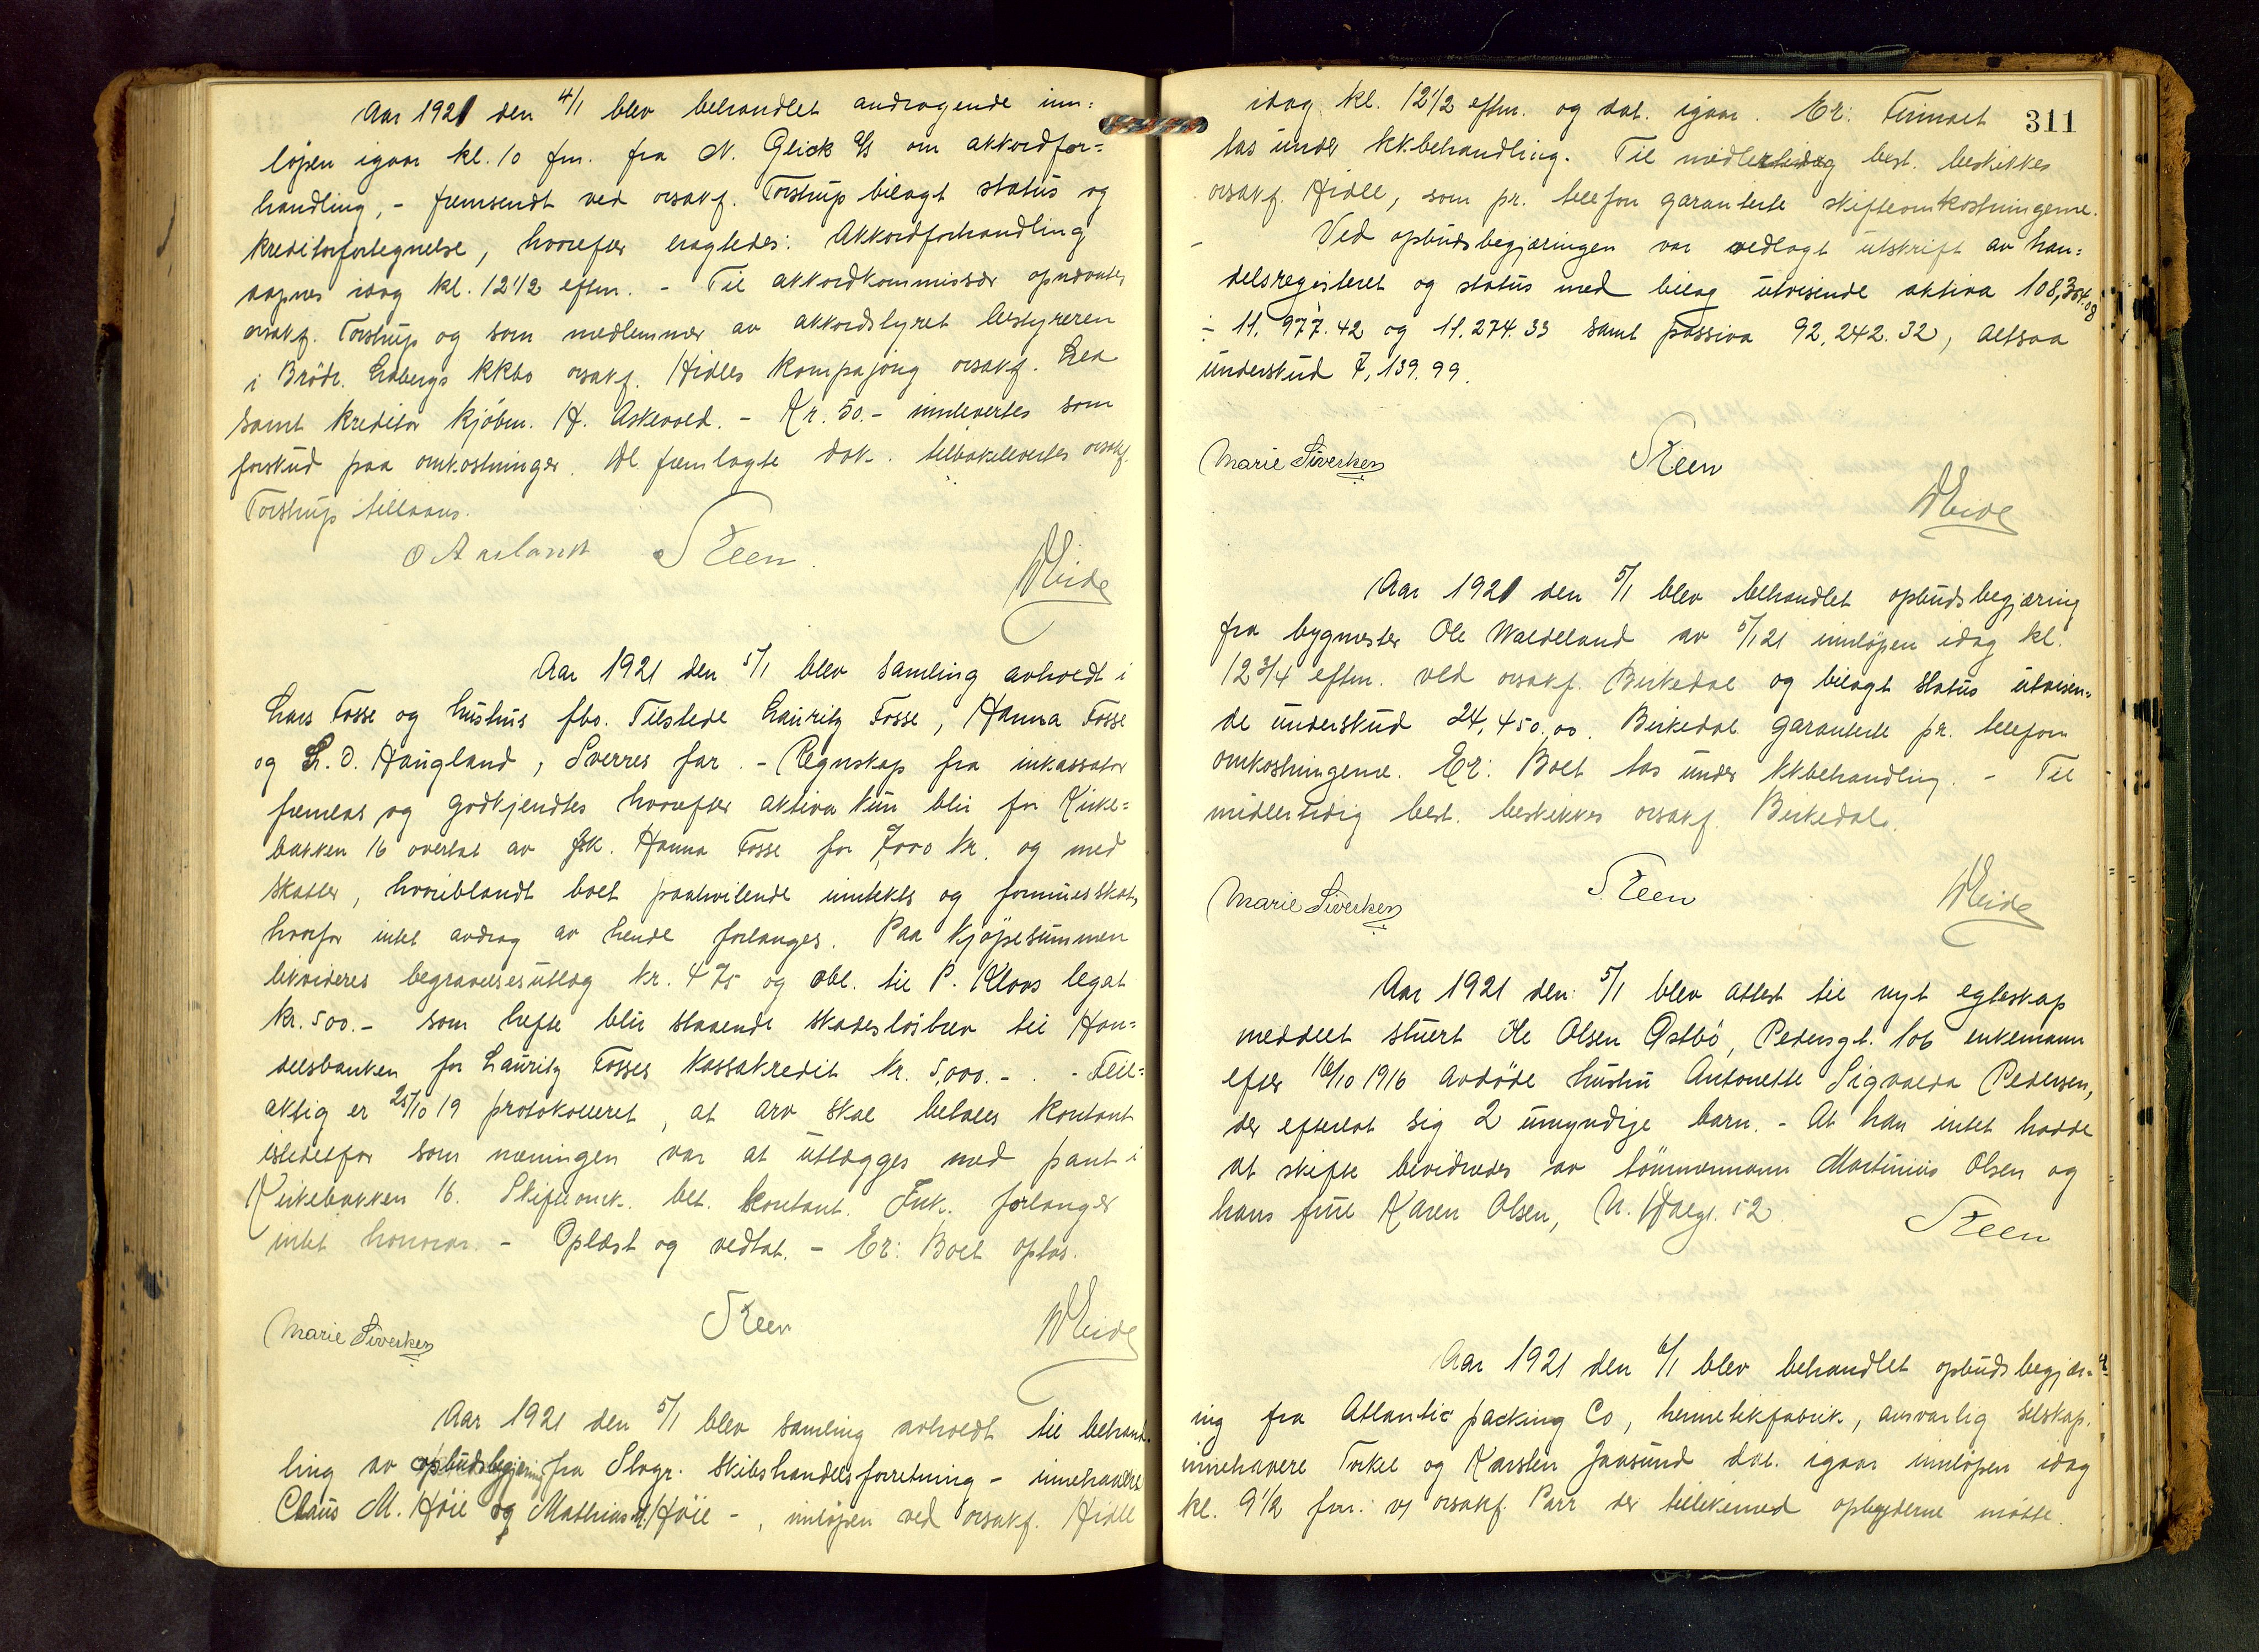 Aar 1921 den 4/1 blev behandlet andragende inn=
löpen igaar kl. 10 fm. fra N. Glick A/S om akkordfor=
handling, - fremsendt ved orsakf. Torstrup bilagt status og
kreditorfortegnelse, hvorefter eragtedes: Akkordforhandling
aapnes idag kl. 12 1/2 eftm. - Til akkordkommissær opnævntes
orsakf. Torstrup og som medlemmer av akkordstyret bestyreren
i Brödr. Edbergs kkbo orsakf. Hidles kompajong orsakf. Lea
samt kreditor kjöbm. H. Askevold. - Kr. 50.- innlevertes som
forskud paa omkostninger. De fremlagte dok. tilbakelevertes orsakf.
Torstrup tillaans.
O Aarlandt Steen. WEide
Aar 1921 den 5/1 blev samling avholdt i
Lars Fosse og hustrus fbo. Tilstede Lauritz Fosse, Hanna Fosse
og L. O. Haugland, Sverres far. - Regnskap fra inkassator
fremlas og godkjendtes hvorefter aktiva kun blir for Kirke=
bakken 16 overtat av frk. Hanna Fosse for 7,000 kr. og med
skatter, hvoriblandt boet paahvilende inntekts og formuesskat,
hvorfor intet avdrag av hende forlanges. Paa kjöpesummen
likvideres begravelsesutlæg kr. 475 og obl. til P. Kloos legat
kr. 500.- som hefte blir staaende skadeslösbrev til Han=
delsbanken for Lauritz Fosses kassakredit kr. 5,000.- . - Feil=
aktig er 25/10 19 protokolleret, at arv skal betales kontant
istedetfor som meningen var at utlægges med pant i
Kirkebakken 16. Skifteomk. bet. kontant. Ink. forlanger
intet honorar. - Oplæst og vedtat. - Er: Boet oplös.
Marie Siversken Steen WEide
Aar 1921 den 5/1 blev samling avholdt til behand=
ling av opbudsbegjæring fra Stvgr. Skibshandelsforretning - innehavere
Claus M. Höie og Mathias M. Höie -, innlöpen ved orsakf. Hidle
311
idag kl. 12 1/2 eftm. og dat. igaar. Er: Firmaet
tas under kkbehandling. Til midlertidig best. beskikkes
orsakf. Hidle, som pr. telefon garanterte skifteomkostningerne.
- Ved opbudsbegjæringen var vedlagt utskrift av han=
delsregisteret og status med bilag utvisende aktiva 108,354.08
÷ 11.977.42 og 11.274.33 samt passiva 92,242.32, altsaa
underskud 7,139.99.
Marie Siversken Steen WEide
Aar 1921 den 5/1 blev behandlet opbudsbegjæring
fra bygmester Ole Waldeland av 5/1 21 innlöpen idag kl.
12 3/4 eftm. ved orsakf. Birkedal og bilagt status utvisen=
de underskud 24,450.00. Birkedal garanterte pr. telefon
omkostningerne. Er: Boet tas under kkbehandling. - Til
midlertidig best. beskikkes orsakf. Birkedal.
Marie Siversken Steen WEide
Aar 1921 den 5/1 blev attest til nyt egteskap
meddelt stuert Ole Olsen Østbö, Pedersgt. 106 enkemann
efter 16/10 1916 avdöde hustru Antonette Sigvalda Pedersen,
der efterlot sig 2 umyndige barn. - At han intet hadde
at skifte bevidnedes av tömmermann Martinius Olsen og
hans frue Karen Olsen, N. Dalgt. 52.
Steen
Aar 1921 den 6/1 blev behandlet opbudsbegjær=
ing fra Atlantic packing Co, hermetikfabrik, ansvarlig selskap,
innehavere Torkel og Karsten Jaasund dat. igaar innlöpen idag
kl. 9 1/2 fm. v/ orsakf. Parr der tillikemed opbyderne mötte.